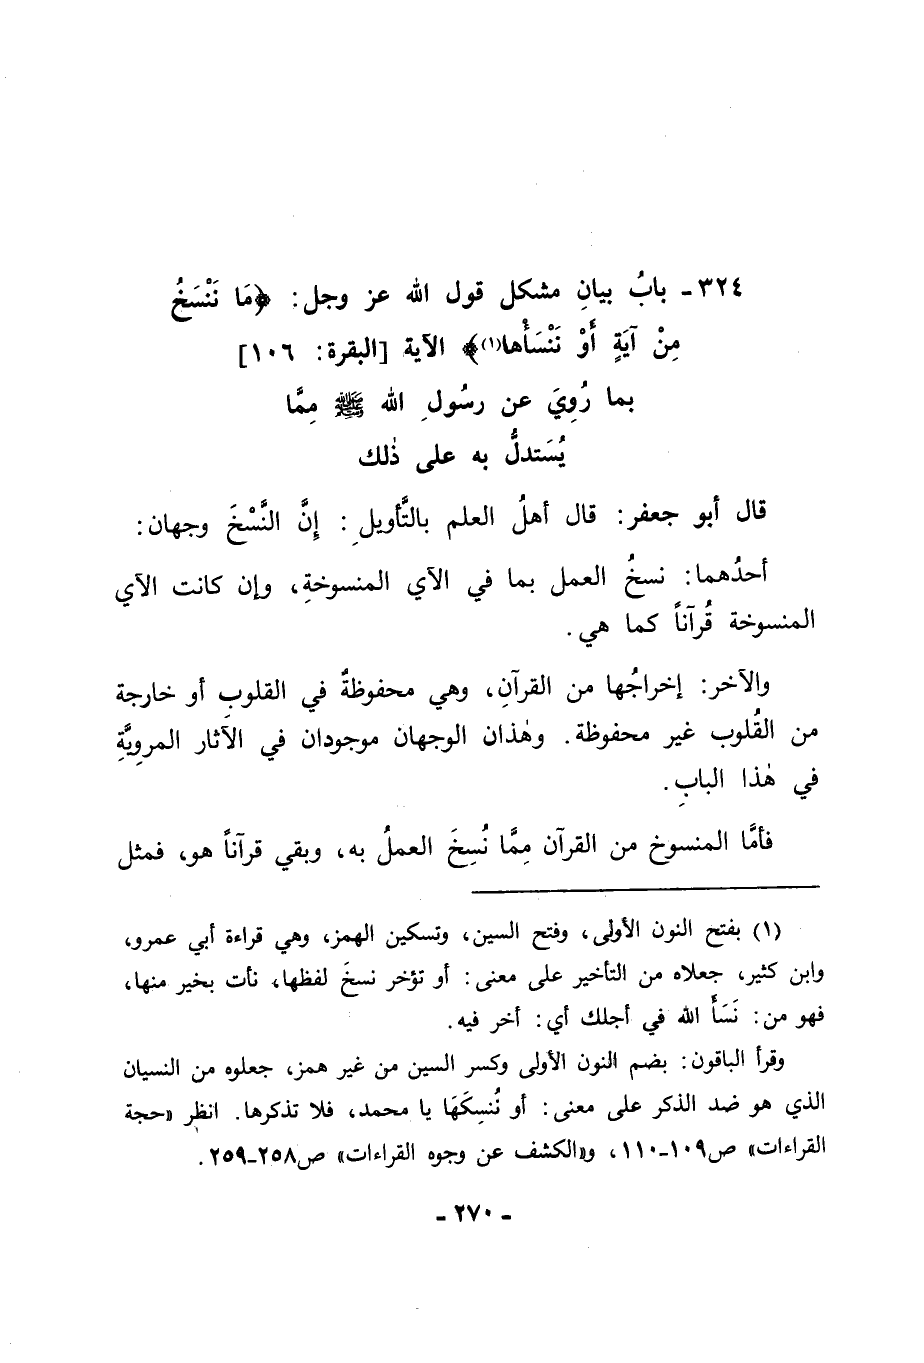 ٣٢٤ ـ بابُ بيانِ مشكل قول الله عز وجل: ﴿مَا نَنْسَخُ
مِنْ آيَةٍ أَوْ نَنْسَأْها(١)﴾ الآية [البقرة: ١٠٦]
بما رُوِيَ عن رسُولِ الله ﷺ مِمَّا
يُسَتدلُّ به على ذٰلك
قال أبو جعفر: قال أهلُ العلم بالتَّأويلِ: إِنَّ النَّسْخَ وجهان:
أحدُهما: نسخُ العمل بما في الآي المنسوخةِ، وإن كانت الآي
المنسوخة قُرآناً كما هي.
والآخر: إخراجُها من القرآنِ، وهي محفوظةٌ في القلوبِ أو خارجة
من القُلوب غير محفوظة. وهٰذان الوجهان موجودان في الآثار المرويَّةِ
في هٰذا البابِ.
فأمَّا المنسوخ من القرآن مِمَّا نُسِخَ العملُ به، وبقي قرآناً هو، فمثل
(١) بفتح النون الأولى، وفتح السين، وتسكين الهمز، وهي قراءة أبي عمرو،
وابن كثير، جعلاه من التأخير على معنى: أو نؤخر نسخَ لفظها، نأت بخير منها،
فهو من: نَسَأَ الله في أجلك أي: أخر فيه.
وقرأ الباقون: بضم النون الأولى وكسر السين من غير همز، جعلوه من النسيان
الذي هو ضد الذكر على معنى: أو نُنسِكَهَا يا محمد، فلا تذكرها. انظر «حجة
القراءات» ص١٠٩ـ١١٠، و«الكشف عن وجوه القراءات» ص٢٥٨ـ٢٥٩.
ـ ٢٧٠ ـ